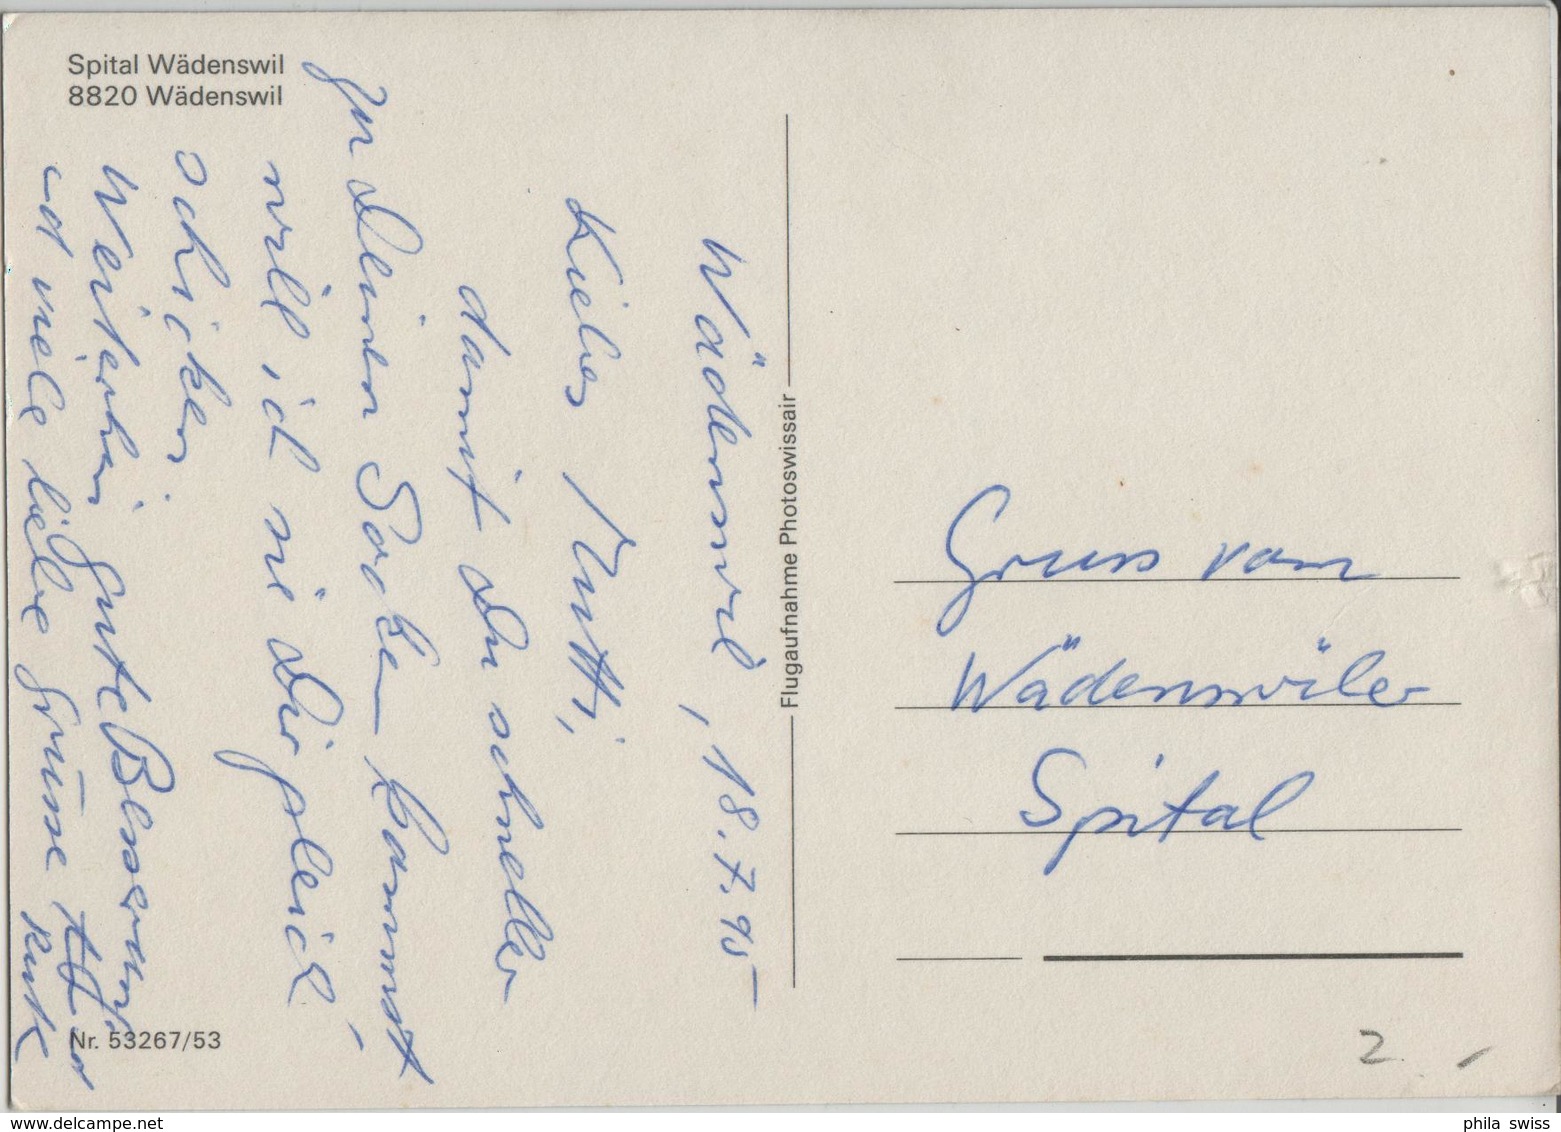 Spital Wädenswil
8820 Wädenswil
Wädenswil, 18.7.95
Liebes Mutti,
damit Du schneller
zu Deinen Socken kommst,
will ich sie Dir gleich
schicken.
Weiterhin gute Besserung
und viele liebe Grüsse
Nr. 53267/53
Flugaufnahme Photoswissair
Gruss vom
Wädenswiler
Spital
2.
phila swiss